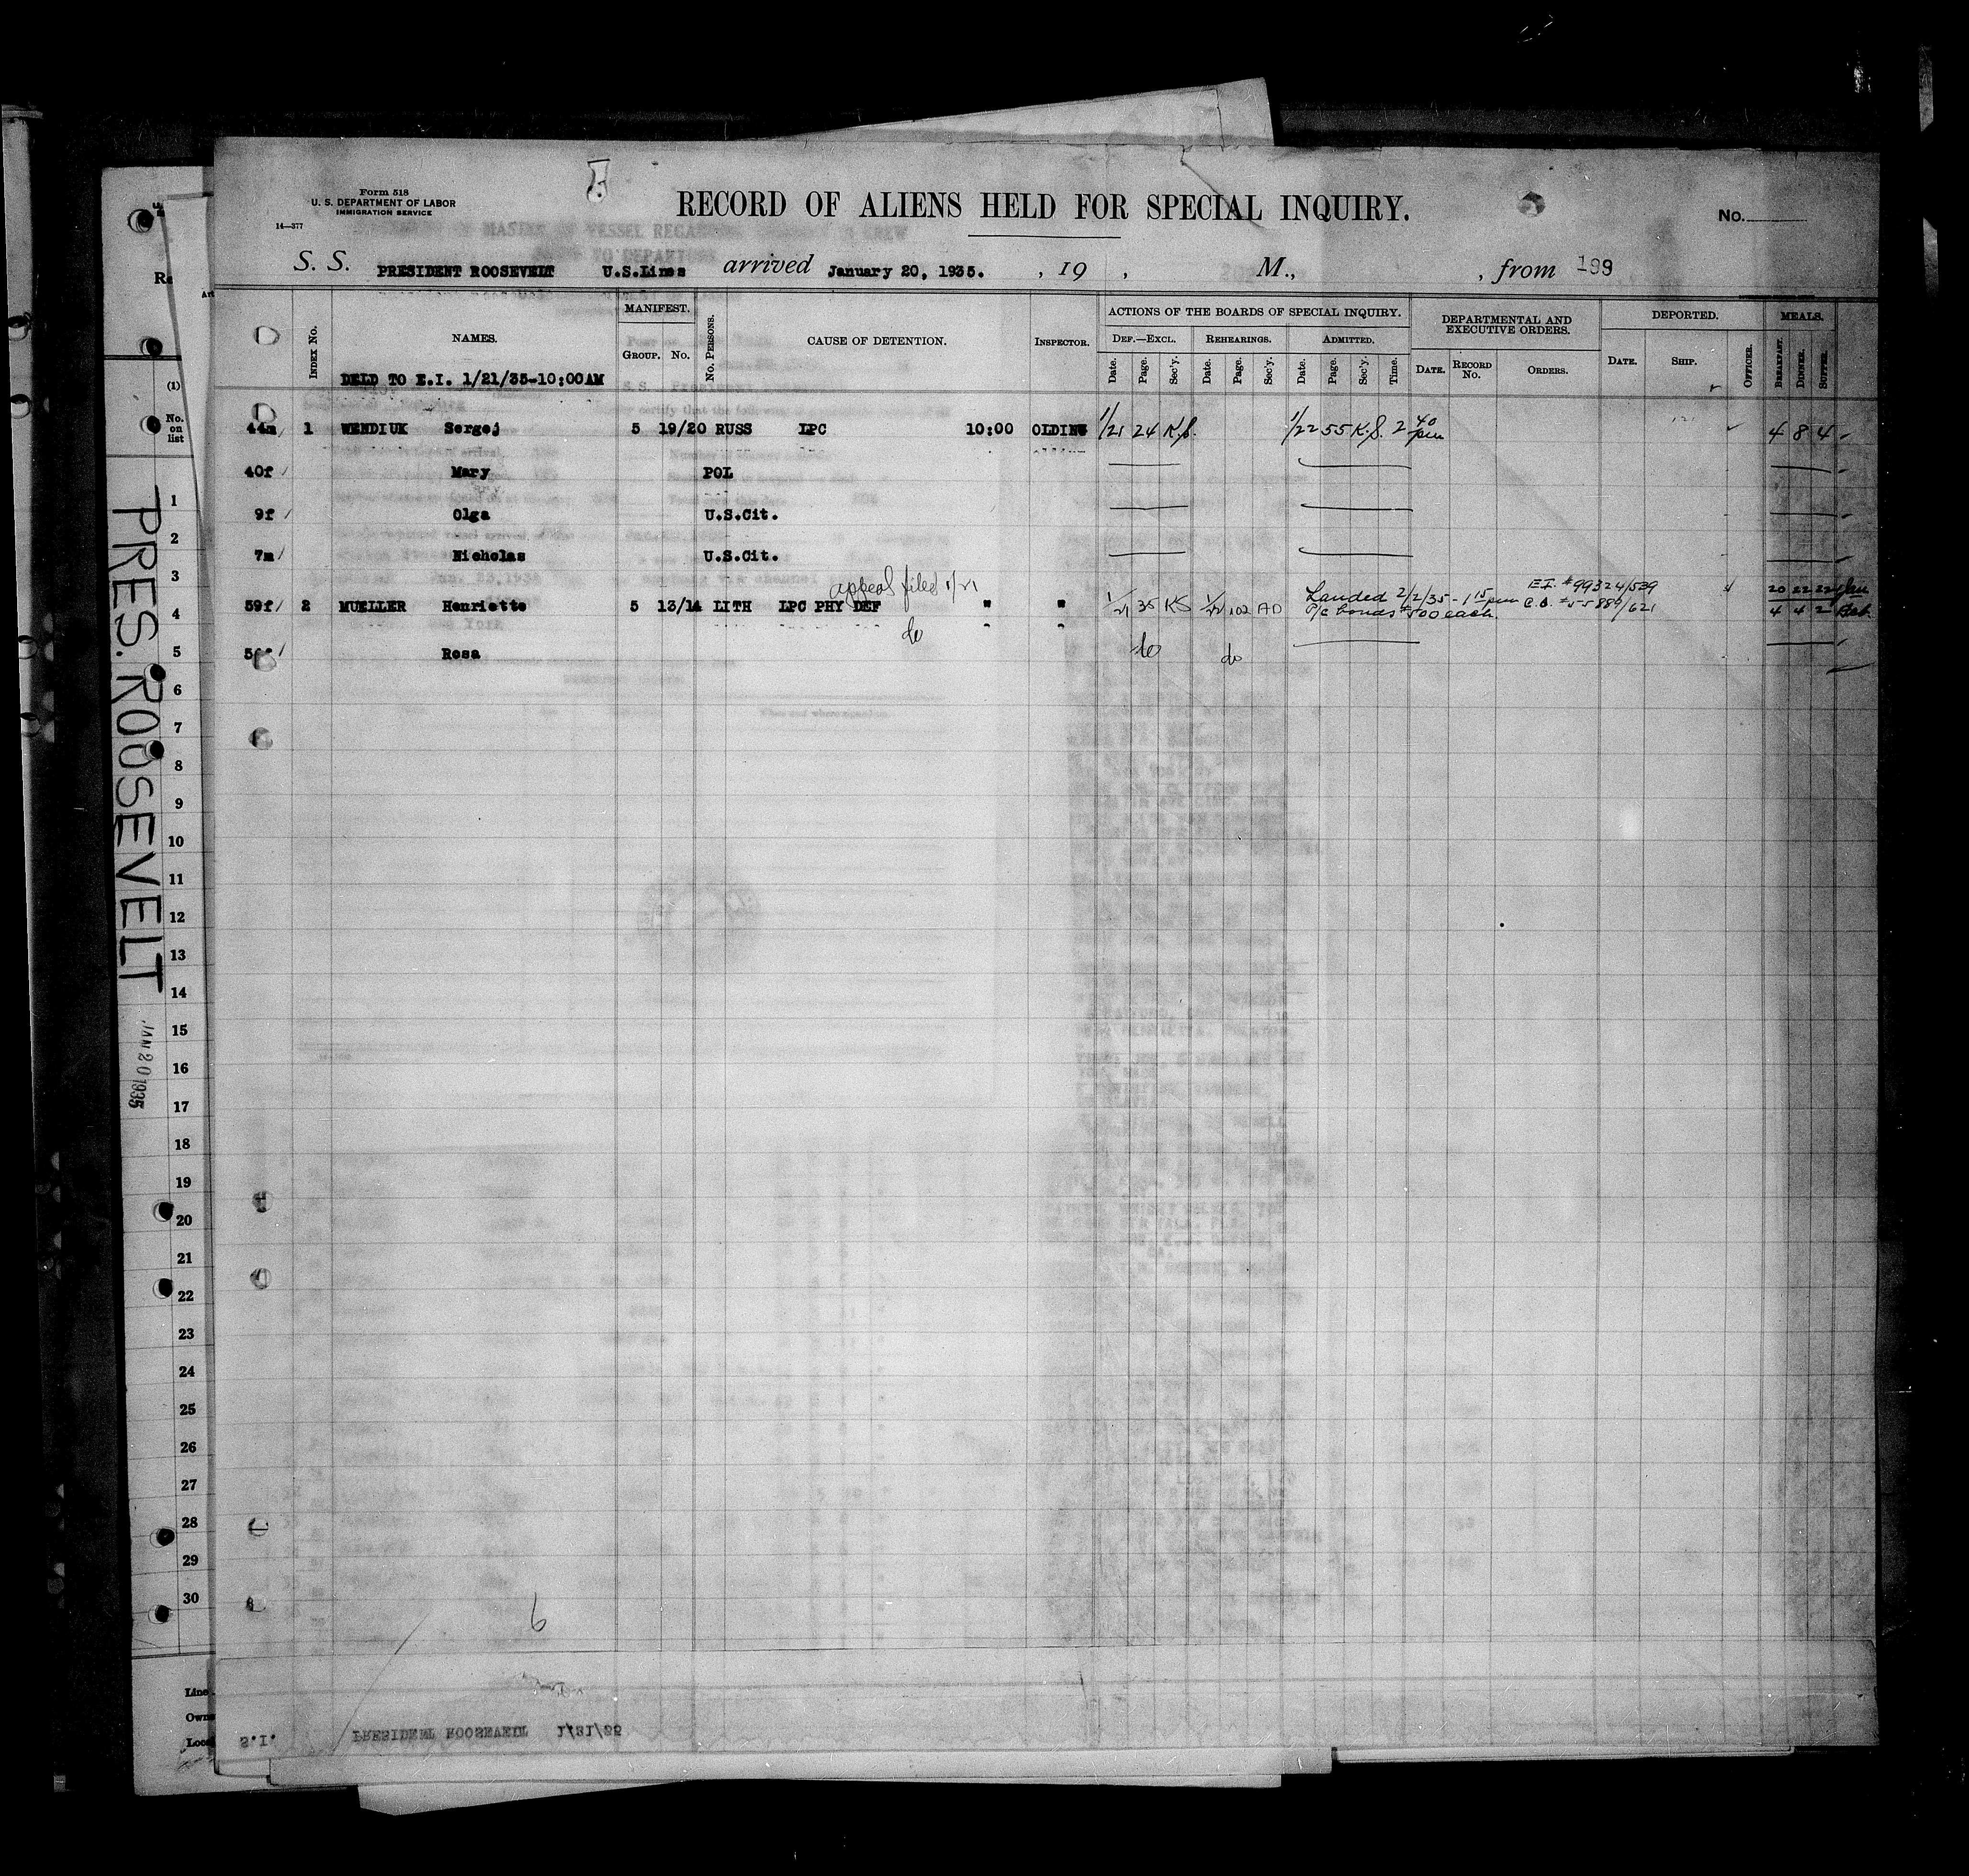 Form 518
U. S. DEPARTMENT OF LABOR
IMMIGRATION SERVICE
14—377
RECORD OF ALIENS HELD FOR SPECIAL INQUIRY.
No.
S. S. PRESIDENT ROOSEVELT U.S.Lines arrived January 20, 1935. , 19 , M., , from 199
INDEX No. NAMES. MANIFEST. GROUP. No. No. PERSONS. CAUSE OF DETENTION. INSPECTOR. ACTIONS OF THE BOARDS OF SPECIAL INQUIRY. DEPARTMENTAL AND EXECUTIVE ORDERS. DEPORTED. MEALS.
DEF.—EXCL. REHEARINGS. ADMITTED.
Date. Page. Sec'y. Date. Page. Sec'y. Date. Page. Sec'y. Time. DATE. RECORD No. ORDERS. DATE. SHIP. OFFICER. BREAKFAST. DINNER. SUPPER.
DELD TO E.I. 1/21/35-10:00AM
44m 1 WENDIUK Sergej 5 19/20 RUSS LPC 10:00 OLDING 1/21 24 K.S. 1/22 55 K.S. 2 40 pm 4 8 4
40f Mary POL
9f Olga U.S.Cit.
7m Nicholas U.S.Cit.
appeal filed 1/21
59f 2 MUELLER Henriette 5 13/14 LITH LPC PHY DEF " " 1/21 35 KS 1/22 102 AD Landed 2/2/35 - 1 15 pm E.I. #99324/539 20 22 22 Jan
P/C bonds $500 each. C.O. #55889/621 4 4 2 Feb
do
Rosa do do
6
S.I. PRESIDENT ROOSEVELT 1/21/35
PRES. ROOSEVELT
JAN 20 1935
(1)
No. on list
1
2
3
4
5
6
7
8
9
10
11
12
13
14
15
16
17
18
19
20
21
22
23
24
25
26
27
28
29
30
Line